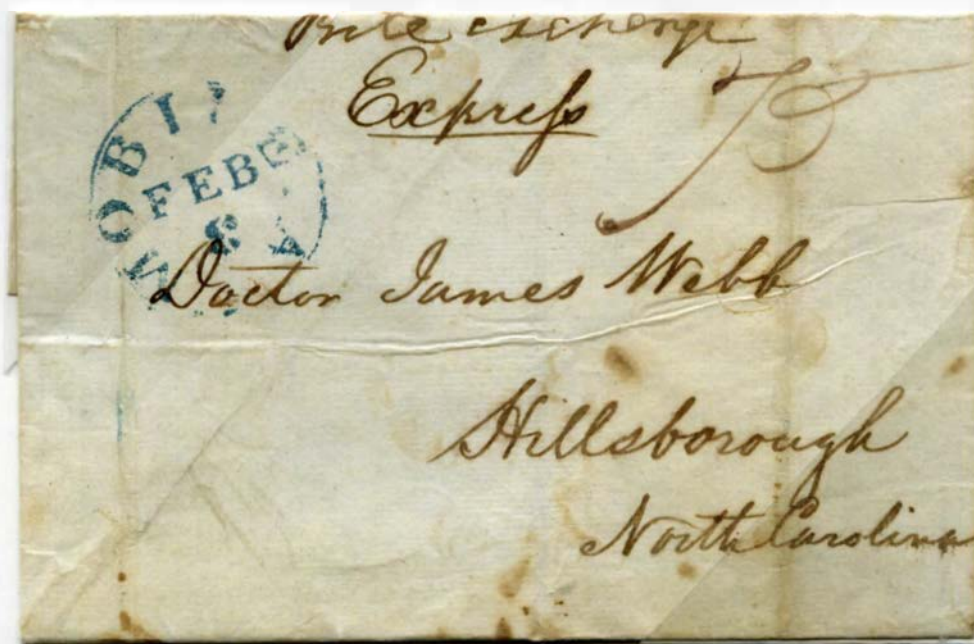 Bill exchange
Express
75
MOBIL
FEB
8
A
Doctor James Webb
Hillsborough
North Carolina